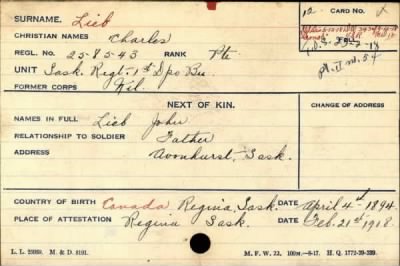 SURNAME. Lieb
CHRISTIAN NAMES Charles
REGL. NO. 258543 RANK Pte
UNIT Sask. Regt. 1st Dpo Bn.
FORMER CORPS Nil.
12 CARD NO.
NEXT OF KIN.
CHANGE OF ADDRESS
NAMES IN FULL Lieb John
RELATIONSHIP TO SOLDIER Father
ADDRESS Avonhurst, Sask.
COUNTRY OF BIRTH Canada Regina, Sask. DATE April 4th 1894
PLACE OF ATTESTATION Regina Sask. DATE Feb. 21st 1918
L. L. 25969. M. & D. 8191.
M. F. W. 22. 100M.—8-17. H. Q. 1772-39-339.